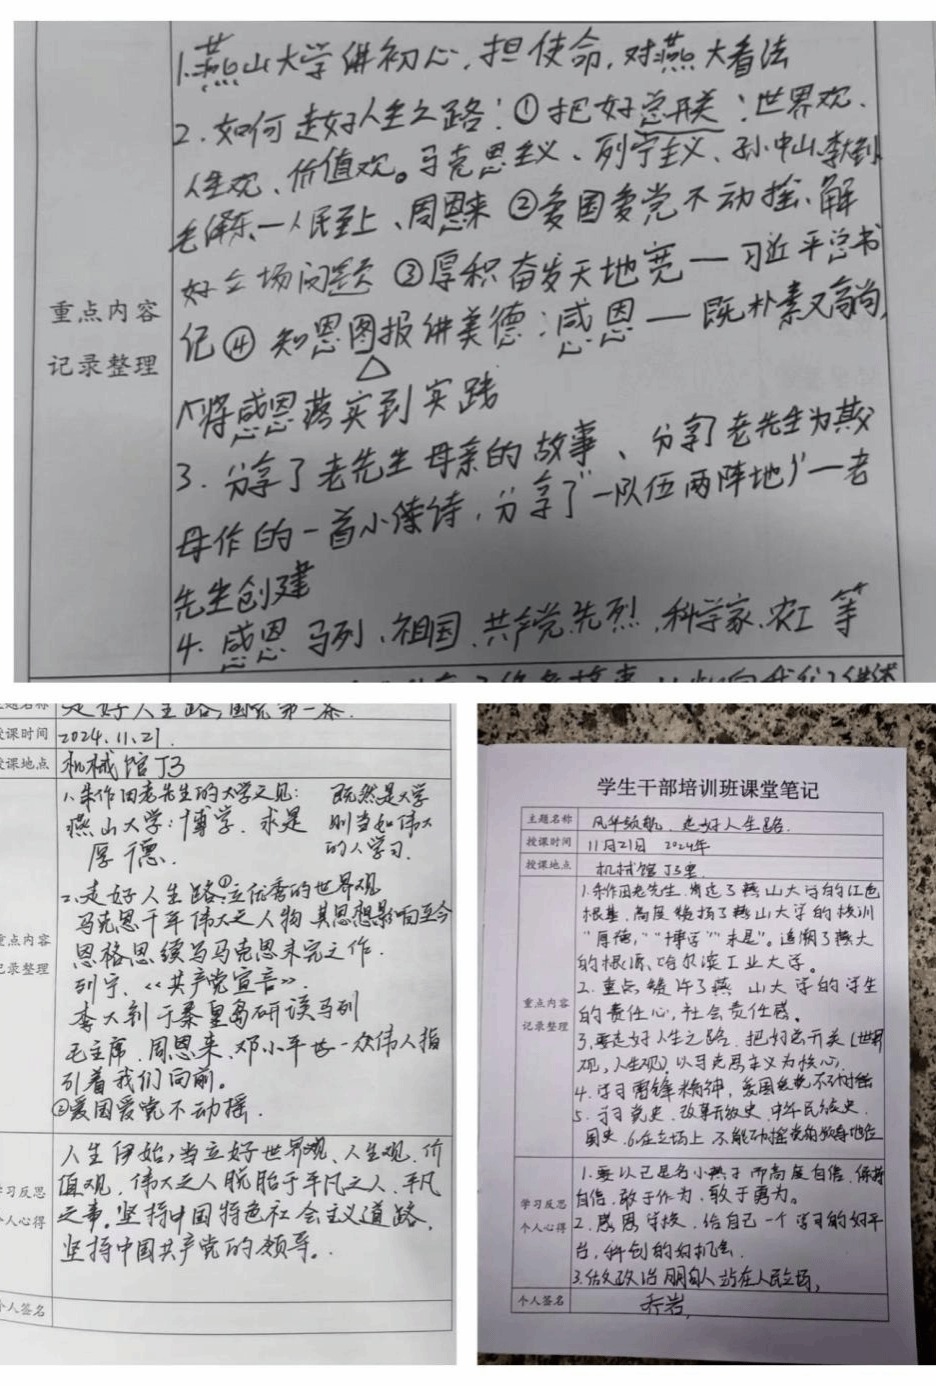 1.燕山大学讲初心,担使命,对燕大看法
2.如何走好人生之路:①把好总开关:世界观、
人生观、价值观。马克思主义、列宁主义、孙中山、李大钊
毛泽东—人民至上、周恩来 ②爱国爱党不动摇、解
好立场问题 ③厚积奋发天地宽—习近平总书
重点内容
记录整理
记④ 知恩图报讲美德:感恩—既朴素又高尚,
将感恩落实到实践
3.分享了老先生母亲的故事、分享了老先生为其父
母作的一首小律诗,分享了“一队伍两阵地”—老
先生创建
4.感恩 马列、祖国、共产党、先烈、科学家、农工 等
走好人生路,国党第一条.
授课时间 2024.11.21.
授课地点 机械馆J3
1.朱作田老先生的大学之见: 既然是大学
燕山大学:博学、求是 则当如伟大
厚德. 的人学习.
2.走好人生路①立优秀的世界观
马克思千年伟大之人物 其思想影响至今
恩格思续写马克思未完之作.
列宁.《共产党宣言》.
李大钊于秦皇岛研读马列
毛主席、周恩来、邓小平等一众伟人指
引着我们向前.
②爱国爱党不动摇.
重点内容
记录整理
人生伊始,当立好世界观、人生观、价
值观,伟大之人脱胎于平凡之人、平凡
之事.坚持中国特色社会主义道路,
坚持中国共产党的领导.
学习反思
个人心得
个人签名
学生干部培训班课堂笔记
主题名称 风华领航、走好人生路.
授课时间 11月21日 2024年
授课地点 机械馆 J3室
1.朱作田老先生,肯定了燕山大学的红色
根基,高度赞扬了燕山大学的校训
“厚德”“博学”“求是”。追溯了燕大
的根源、哈尔滨工业大学。
2.重点赞许了燕山大学的学生
的责任心,社会责任感。
3.要走好人生之路,把好总开关(世界
观,人生观)以马克思主义为核心,
4.学习雷锋精神,爱国爱党不动摇
5.学习党史、改革开放史、中华民族史、
国史.6.在立场上 不能动摇党的领导地位
重点内容
记录整理
1.要以己是名小燕子而高度自信.保持
自信,敢于作为,敢于勇为。
2.感恩学校,给自己一个学习的好平
台,科创的好机会.
3.做政治明白人 站在人民立场,
学习反思
个人心得
个人签名 乔岩,